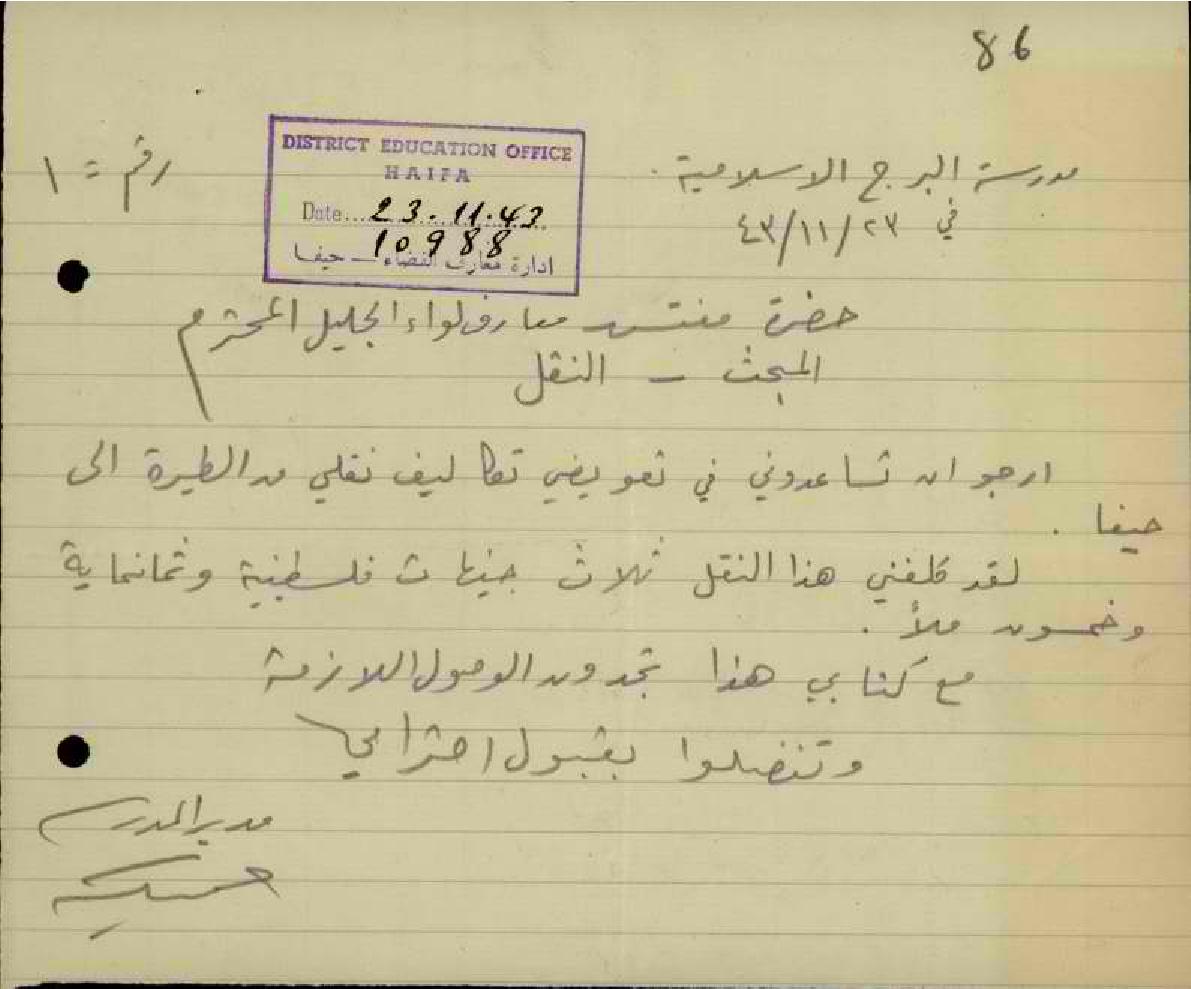 86
مدرسة البرج الاسلامية .
رقم = ١
في ٢٣/١١/٤٣
DISTRICT EDUCATION OFFICE
HAIFA
Date... 23.11.43
10988
ادارة معارف القضاء — حيفا
حضرة مفتش معارف لواء الجليل المحترم
المبحث – النقل
ارجو ان تساعدوني في تعويضي تكاليف نقلي من الطيرة الى
حيفا .
لقد كلفني هذا النقل ثلاث جنيهات فلسطينية وثمانماية
وخمسون ملاً .
مع كتابي هذا تجدون الوصول اللازمة
وتفضلوا بقبول احترامي
مدير المدرسة